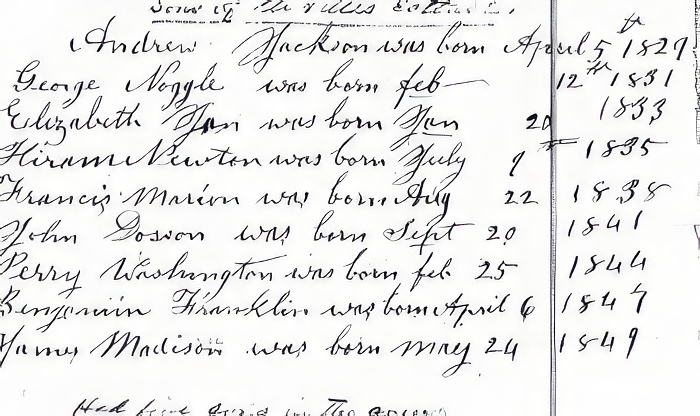 Andrew Jackson was born April 5th 1829
George Noggle was born feb 12th 1831
Elizabeth Jan was born Jan 20 1833
Hiram Newton was born July 9th 1835
Francis Marion was born Aug 22 1838
John Dosson was born Sept 20 1841
Perry Washington was born feb 25 1844
Benjamin Franklin was born April 6 1847
James Madison was born may 24 1849
Had five sons in the